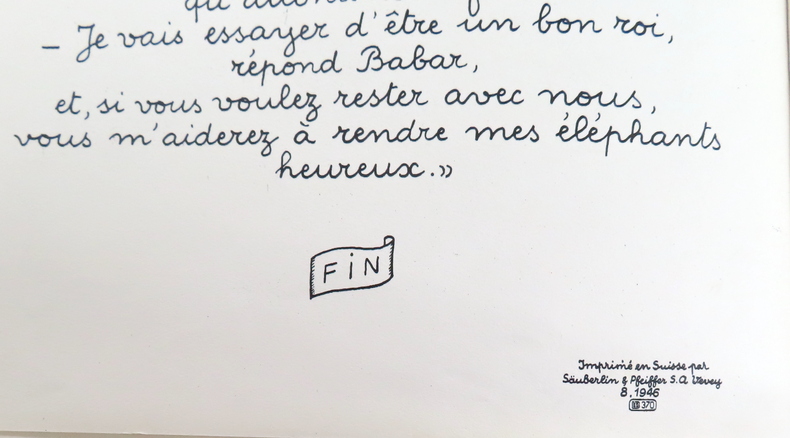 – Je vais essayer d'être un bon roi,
répond Babar,
et, si vous voulez rester avec nous,
vous m'aiderez à rendre mes éléphants
heureux.»
FiN
Imprimé en Suisse par
Säuberlin & Pfeiffer S.A. Vevey
8.1946
370